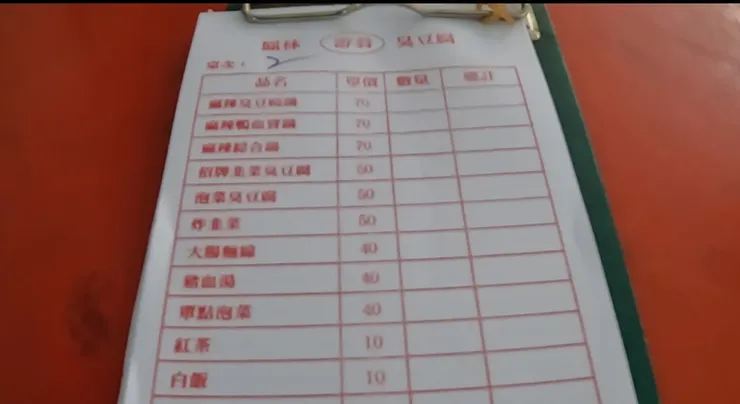 鳳林 臭豆腐
桌次: 2
品名 單價 數量 總計
麻辣臭豆腐鍋 70
麻辣鴨血寶鍋 70
麻辣綜合鍋 70
招牌韭菜臭豆腐 50
泡菜臭豆腐 50
炸韭菜 50
大腸麵線 40
豬血湯 40
單點泡菜 40
紅茶 10
白飯 10